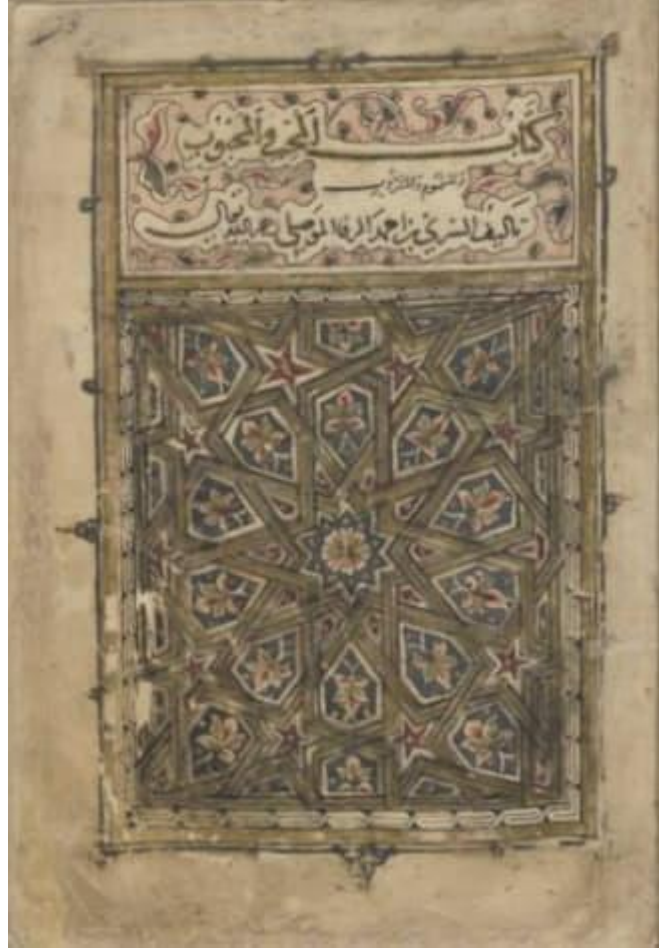 كتاب المحب والمحبوب
والمشموم والمشروب
تأليف السري بن احمد الرفا الموصلي رحمه الله تعالى